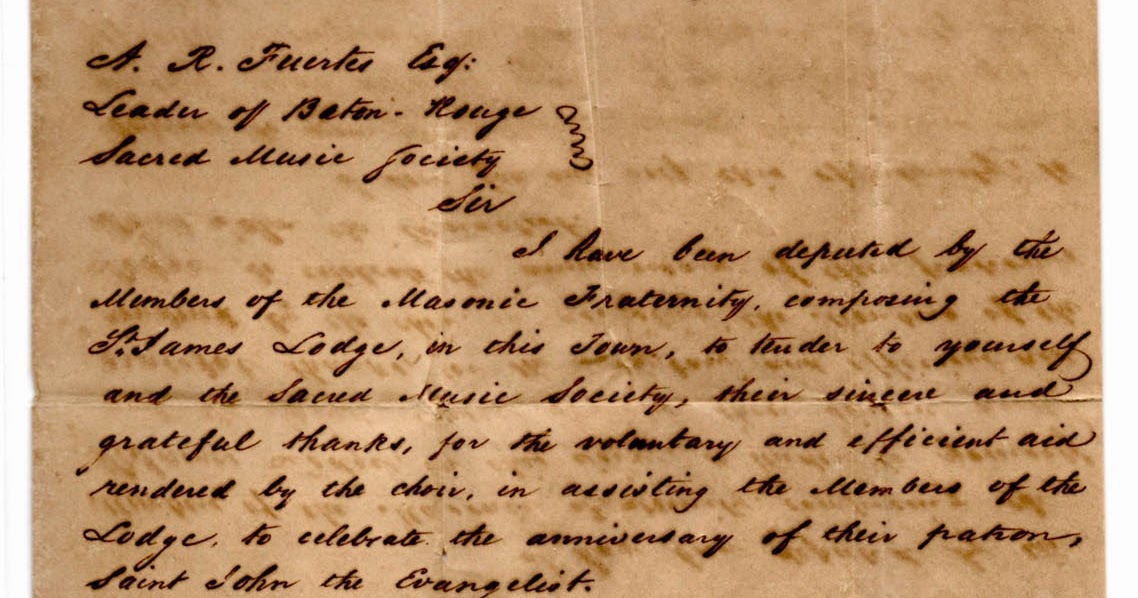 A. R. Fuertes Esq:
Leader off Baton-Rouge
Sacred Music Society
Sir
I have been deputed by the
Members of the Masonic Fraternity, composing the
St. James Lodge, in this Town, to tender to yourself
and the Sacred Music Society, their sincere and
grateful thanks, for the voluntary and efficient aid
rendered by the choir, in assisting the Members of the
Lodge, to celebrate the anniversary of their patron,
Saint John the Evangelist.